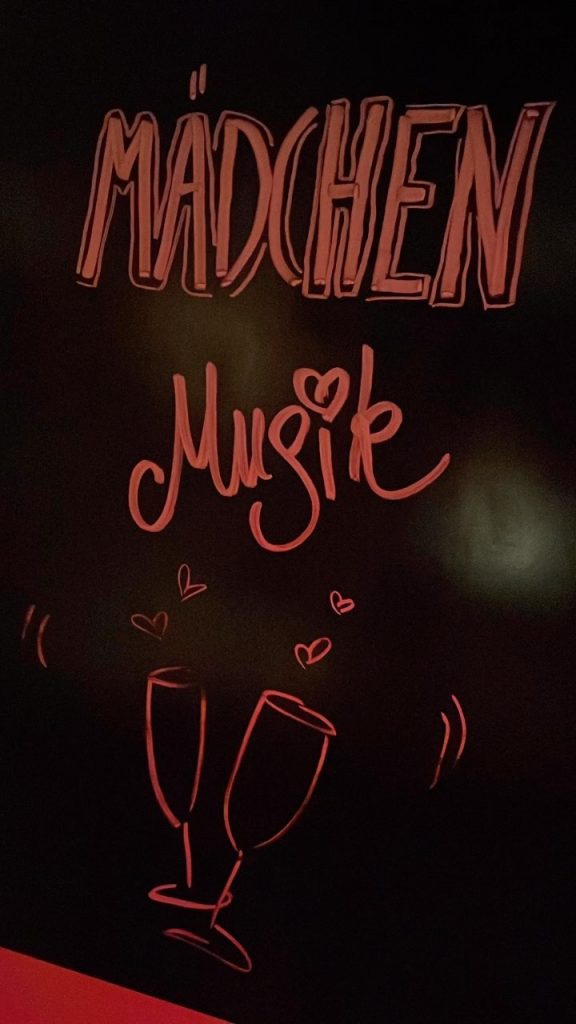 MÄDCHEN
Musik